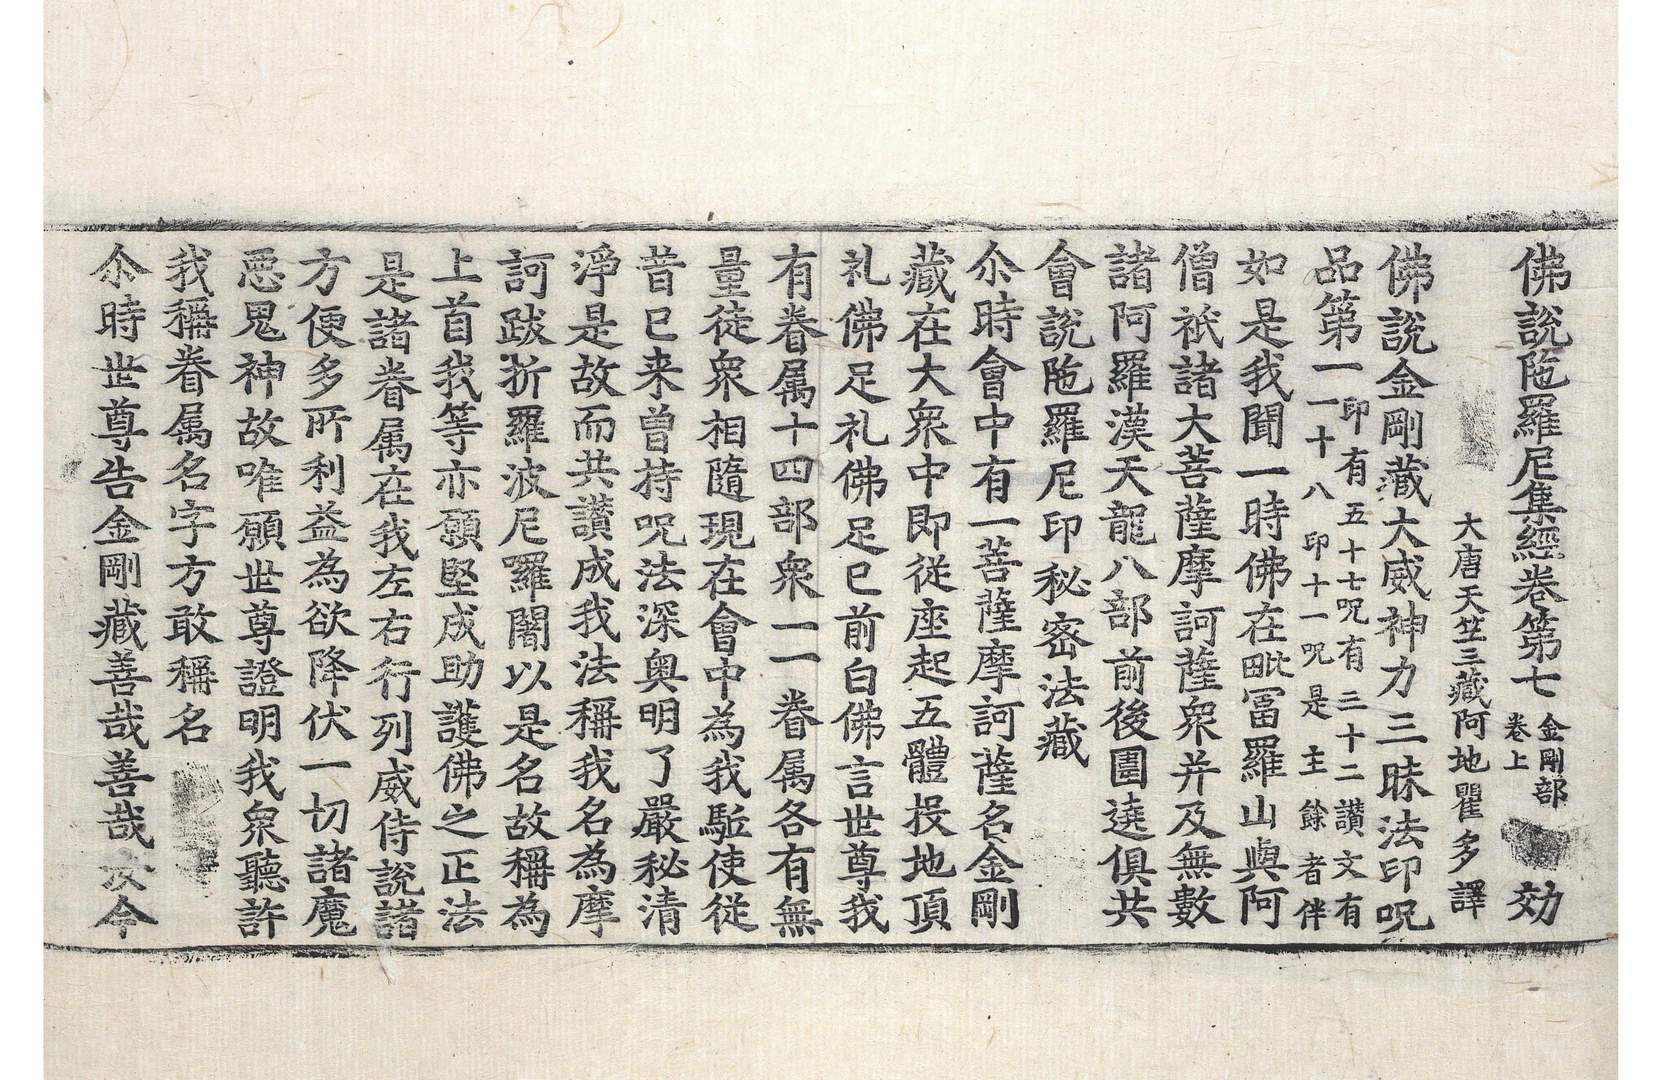 佛說陁羅尼集經卷第七 金剛部卷上 効
大唐天竺三藏阿地瞿多譯
佛說金剛藏大威神力三昧法印呪
品第一 印有五十七呪有三十二讃文有一十八印十一呪是主餘者伴
如是我聞一時佛在毗冨羅山與阿
僧祇諸大菩薩摩訶薩衆并及無數
諸阿羅漢天龍八部前後圍遶俱共
會說陁羅尼印秘密法藏
尒時會中有一菩薩摩訶薩名金剛
藏在大衆中即從座起五體投地頂
礼佛足礼佛足已前白佛言世尊我
有眷属十四部衆一一眷属各有無
量徒衆相隨現在會中為我駈使從
昔已来曾持呪法深奥明了嚴秘清
淨是故而共讃成我法稱我名為摩
訶跋折羅波尼羅闍以是名故稱為
上首我等亦願堅成助護佛之正法
是諸眷属在我左右行列威侍說諸
方便多所利益為欲降伏一切諸魔
惡鬼神故唯願世尊證明我衆聽許
我稱眷属名字方敢稱名
尒時世尊告金剛藏善哉善哉汝今